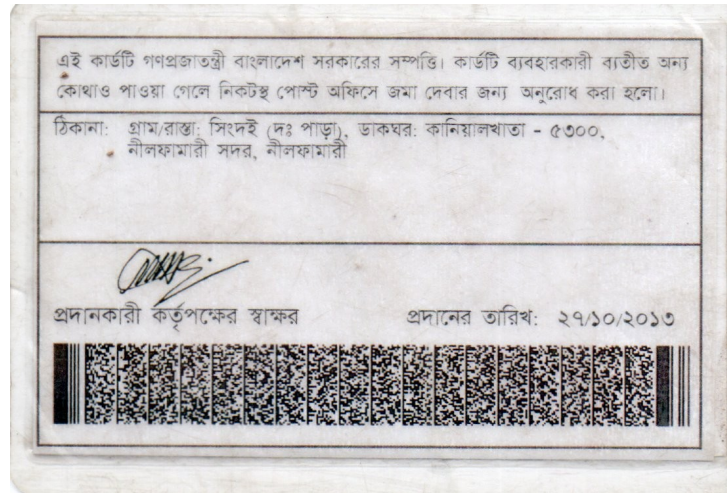 এই কার্ডটি গণপ্রজাতন্ত্রী বাংলাদেশ সরকারের সম্পত্তি। কার্ডটি ব্যবহারকারী ব্যতীত অন্য
কোথাও পাওয়া গেলে নিকটস্থ পোস্ট অফিসে জমা দেবার জন্য অনুরোধ করা হলো।
ঠিকানা: গ্রাম/রাস্তা: সিংদই (দঃ পাড়া), ডাকঘর: কানিয়ালখাতা - ৫৩০০,
নীলফামারী সদর, নীলফামারী
প্রদানকারী কর্তৃপক্ষের স্বাক্ষর প্রদানের তারিখ: ২৭/১০/২০১৩